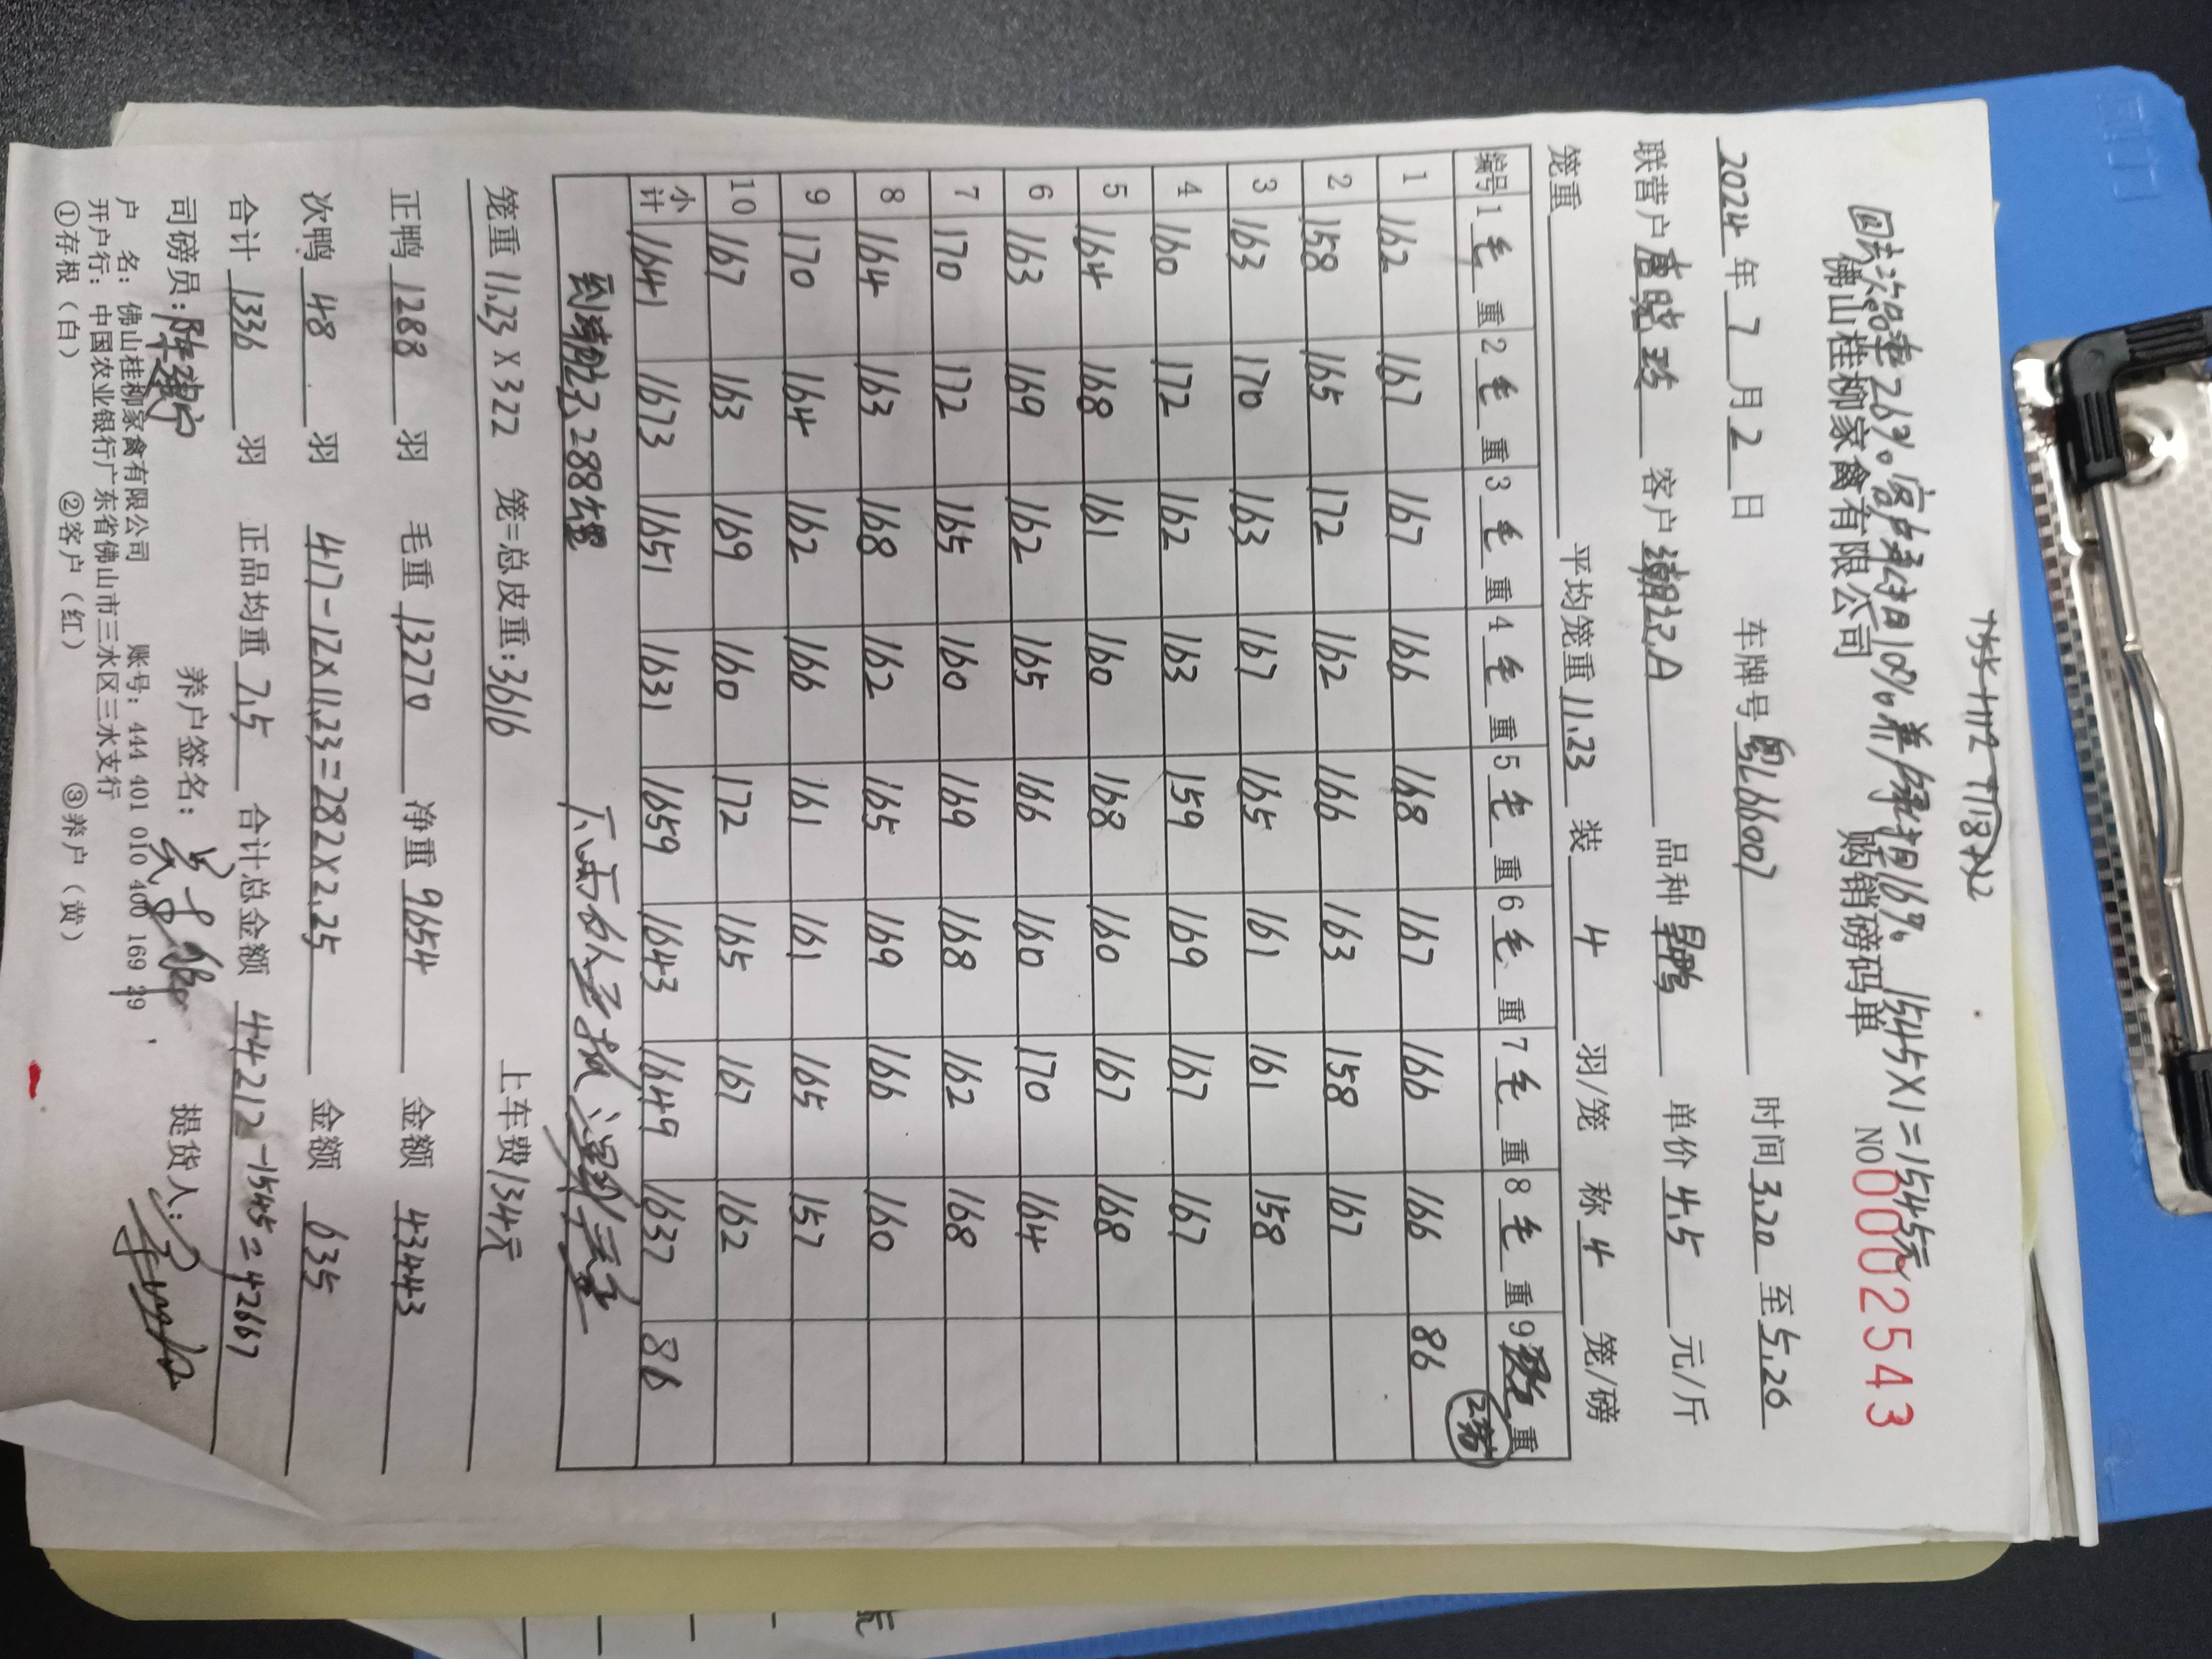 因去次品率26%.客户 10% 养户 16%. 1545X1=1545元
佛山桂柳家禽有限公司 购销磅码单 NO 0002543
2024年7月2日 车牌号 粤L66007 时间 3.20 至 5.26
联营户 客户 潮记A 品种 旱鸭 单价 4.5 元/斤
笼重 平均笼重 11.23 装 4 羽/笼 称 4 笼/磅
编号 1 毛 重 2 毛 重 3 毛 重 4 毛 重 5 毛 重 6 毛 重 7 毛 重 8 毛 重 9 重
1 162 167 167 166 168 167 166 166 86
2 158 165 172 162 166 163 158 167
3 163 170 163 167 165 161 161 158
4 160 172 162 163 159 169 167 167
5 164 168 161 160 168 160 167 168
6 163 169 162 165 166 160 170 164
7 170 172 165 160 169 168 162 168
8 164 163 168 162 165 169 166 160
9 170 164 162 166 161 161 165 157
10 167 163 169 160 172 165 167 162
小计 1641 1673 1651 1631 1659 1643 1649 1637 86
288
笼重 11.23 X 322 笼=总皮重:3616 上车费134元
正鸭 1288 羽 毛重 13270 净重 9654 金额 43443
次鸭 48 羽 417-12X11.23=282X2.25 金额 635
合计 1336 羽 正品均重 7.5 合计总金额 44212-1545=42667
司磅员: 养户签名: 提货人:
户 名:佛山桂柳家禽有限公司 账号:444 401 010 400 169 29
开户行:中国农业银行广东省佛山市三水区三水支行
①存根(白) ②客户(红) ③养户(黄)
元